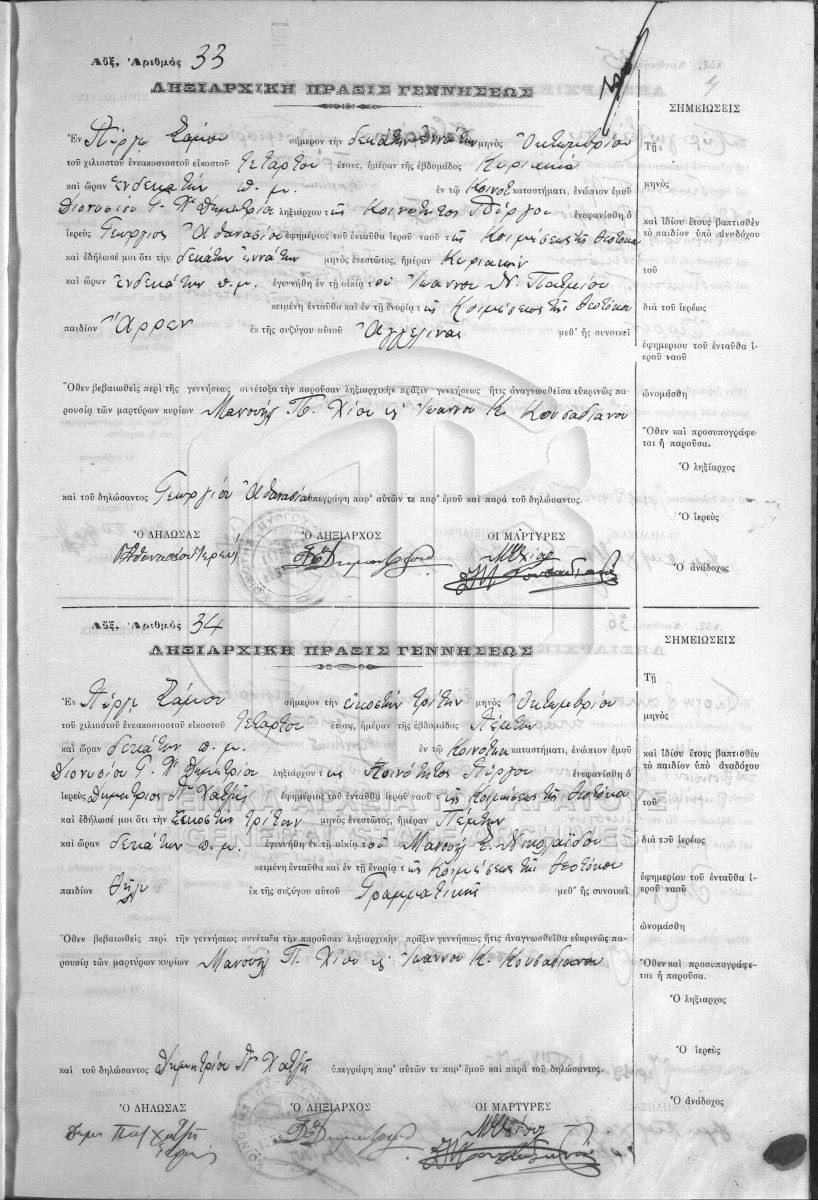 Αὔξ. Ἀριθμὸς 33
ΛΗΞΙΑΡΧΙΚΗ ΠΡΑΞΙΣ ΓΕΝΝΗΣΕΩΣ
Ἐν Πύργῳ Σάμου σήμερον τὴν δεκάτην ἐννάτην μηνὸς Ὀκτωβρίου
τοῦ χιλιοστοῦ ἐνεακοσιοστοῦ εἰκοστοῦ τετάρτου ἔτους, ἡμέραν τῆς ἑβδομάδος Κυριακὴ
καὶ ὥραν ἑνδεκάτην π.μ. ἐν τῷ Κοινοτ καταστήματι, ἐνώπιον ἐμοῦ
Διονυσίου Γ. Χ" Δημητρίου ληξιάρχου τῆς Κοινότητος Πύργου ἐνεφανίσθη ὁ
ἱερεὺς Γεώργιος Ἀθανασίου ἐφημέριος τοῦ ἐνταῦθα ἱεροῦ ναοῦ τῆς Κοιμήσεως τῆς Θεοτόκου
καὶ ἐδήλωσέ μοι ὅτι τὴν δεκάτην ἐννάτην μηνὸς ἐνεστῶτος, ἡμέραν Κυριακὴν
καὶ ὥραν ἑνδεκάτην π.μ. ἐγεννήθη ἐν τῇ οἰκίᾳ τοῦ Ἰωάννου Ν. Πατμίου
κειμένη ἐνταῦθα καὶ ἐν τῇ ἐνορίᾳ τῆς Κοιμήσεως τῆς Θεοτόκου
παιδίον Ἄρρεν ἐκ τῆς συζύγου αὐτοῦ Ἀγγελίνας μεθ' ἧς συνοικεῖ
Ὅθεν βεβαιωθεὶς περὶ τῆς γεννήσεως συνέταξα τὴν παροῦσαν ληξιαρχικὴν πρᾶξιν γεννήσεως ἥτις ἀναγνωσθεῖσα εὐκρινῶς πα-
ρουσίᾳ τῶν μαρτύρων κυρίων Μανουὴλ Π. Χίου κ' Ἰωάννου Κ. Κουσαδιανοῦ
καὶ τοῦ δηλώσαντος Γεωργίου Ἀθανασίου ὑπεγράφη παρ' αὐτῶν τε παρ' ἐμοῦ καὶ παρὰ τοῦ δηλώσαντος.
Ὁ ΔΗΛΩΣΑΣ Ὁ ΛΗΞΙΑΡΧΟΣ ΟΙ ΜΑΡΤΥΡΕΣ
ΣΗΜΕΙΩΣΕΙΣ
Τῇ
μηνὸς
καὶ ἰδίου ἔτους βαπτισθὲν
τὸ παιδίον ὑπὸ ἀναδόχου
τοῦ
διὰ τοῦ ἱερέως
ἐφημερίου τοῦ ἐνταῦθα ἱ-
εροῦ ναοῦ
ὠνομάσθη
Ὅθεν καὶ προσυπογράφε-
ται ἡ παροῦσα.
Ὁ ληξίαρχος
Ὁ ἱερεὺς
Ὁ ἀνάδοχος
Αὔξ. Ἀριθμὸς 34
ΛΗΞΙΑΡΧΙΚΗ ΠΡΑΞΙΣ ΓΕΝΝΗΣΕΩΣ
Ἐν Πύργῳ Σάμου σήμερον τὴν εἰκοστὴν τρίτην μηνὸς Ὀκτωβρίου
τοῦ χιλιοστοῦ ἐνεακοσιοστοῦ εἰκοστοῦ τετάρτου ἔτους, ἡμέραν τῆς ἑβδομάδος Πέμπτην
καὶ ὥραν δεκάτην π.μ. ἐν τῷ Κοινοτικ καταστήματι, ἐνώπιον ἐμοῦ
Διονυσίου Γ. Χ" Δημητρίου ληξιάρχου τῆς Κοινότητος Πύργου ἐνεφανίσθη ὁ
ἱερεὺς Δημήτριος Π" Χατζῆς ἐφημέριος τοῦ ἐνταῦθα ἱεροῦ ναοῦ τῆς Κοιμήσεως τῆς Θεοτόκου
καὶ ἐδήλωσέ μοι ὅτι τὴν Εἰκοστὴν τρίτην μηνὸς ἐνεστῶτος, ἡμέραν Πέμπτην
καὶ ὥραν δεκάτην π.μ. ἐγεννήθη ἐν τῇ οἰκίᾳ τοῦ Μανουὴλ Σ. Νικολαΐδου
κειμένη ἐνταῦθα καὶ ἐν τῇ ἐνορίᾳ τῆς Κοιμήσεως τῆς Θεοτόκου
παιδίον Θῆλυ ἐκ τῆς συζύγου αὐτοῦ Γραμματικῆς μεθ' ἧς συνοικεῖ
Ὅθεν βεβαιωθεὶς περὶ τὴν γεννήσεως συνέταξα τὴν παροῦσαν ληξιαρχικὴν πρᾶξιν γεννήσεως ἥτις ἀναγνωσθεῖθα εὐκρινῶς πα-
ρουσίᾳ τῶν μαρτύρων κυρίων Μανουὴλ Π. Χίου κ' Ἰωάννου Κ. Κουσαδιανοῦ
καὶ τοῦ δηλώσαντος Δημητρίου Π" Χατζῆ ὑπεγράφη παρ' αὐτῶν τε παρ' ἐμοῦ καὶ παρὰ τοῦ δηλώσαντος.
Ὁ ΔΗΛΩΣΑΣ Ὁ ΛΗΞΙΑΡΧΟΣ ΟΙ ΜΑΡΤΥΡΕΣ
ΣΗΜΕΙΩΣΕΙΣ
Τῇ
μηνὸς
καὶ ἰδίου ἔτους βαπτισθὲν
τὸ παιδίον ὑπὸ ἀναδόχου
τοῦ
διὰ τοῦ ἱερέως
ἐφημερίου τοῦ ἐνταῦθα ἱ-
εροῦ ναοῦ
ὠνομάσθη
Ὅθεν καὶ προσυπογράφε-
ται ἡ παροῦσα.
Ὁ ληξίαρχος
Ὁ ἱερεὺς
Ὁ ἀνάδοχος
ΓΕΝΙΚΑ ΑΡΧΕΙΑ ΤΟΥ ΚΡΑΤΟΥΣ
GENERAL STATE ARCHIVES